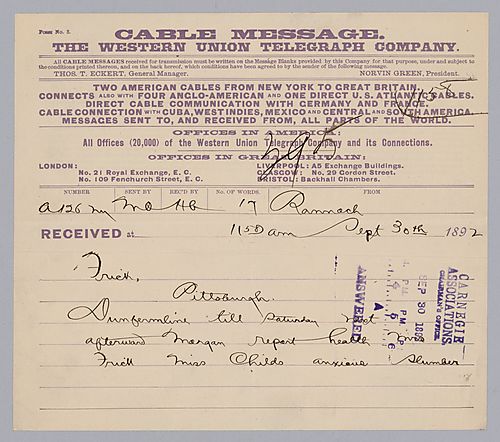 FORM No. 2.
CABLE MESSAGE.
THE WESTERN UNION TELEGRAPH COMPANY.
All CABLE MESSAGES received for transmission must be written on the Message Blanks provided by this Company for that purpose, under and subject to
the conditions printed thereon, and on the back hereof, which conditions have been agreed to by the sender of the following message.
THOS. T. ECKERT, General Manager. NORVIN GREEN, President.
TWO AMERICAN CABLES FROM NEW YORK TO GREAT BRITAIN.
CONNECTS ALSO WITH FOUR ANGLO-AMERICAN AND ONE DIRECT U.S. ATLANTIC CABLES.
DIRECT CABLE COMMUNICATION WITH GERMANY AND FRANCE.
CABLE CONNECTION WITH CUBA, WEST INDIES, MEXICO AND CENTRAL AND SOUTH AMERICA.
MESSAGES SENT TO, AND RECEIVED FROM, ALL PARTS OF THE WORLD.
OFFICES IN AMERICA:
All Offices (20,000) of the Western Union Telegraph Company and its Connections.
OFFICES IN GREAT BRITAIN:
LONDON: LIVERPOOL: A5 Exchange Buildings.
No. 21 Royal Exchange, E. C. GLASGOW: No. 29 Gordon Street.
No. 109 Fenchurch Street, E. C. BRISTOL: Backhall Chambers.
295
NUMBER SENT BY REC'D BY No. OF WORDS. FROM
A126 Ny MO HB 17 Rannoch
RECEIVED at 1150 am Sept 30th 1892
Frick,
Pittsburgh.
Dunfermline till Saturday next
afterward Morgan report health Mrs
Frick Miss Childs anxious Slumber
CARNEGIE
ASSOCIATIONS
CHAIRMAN'S OFFICE.
SEP 30 1892
ANSWERED